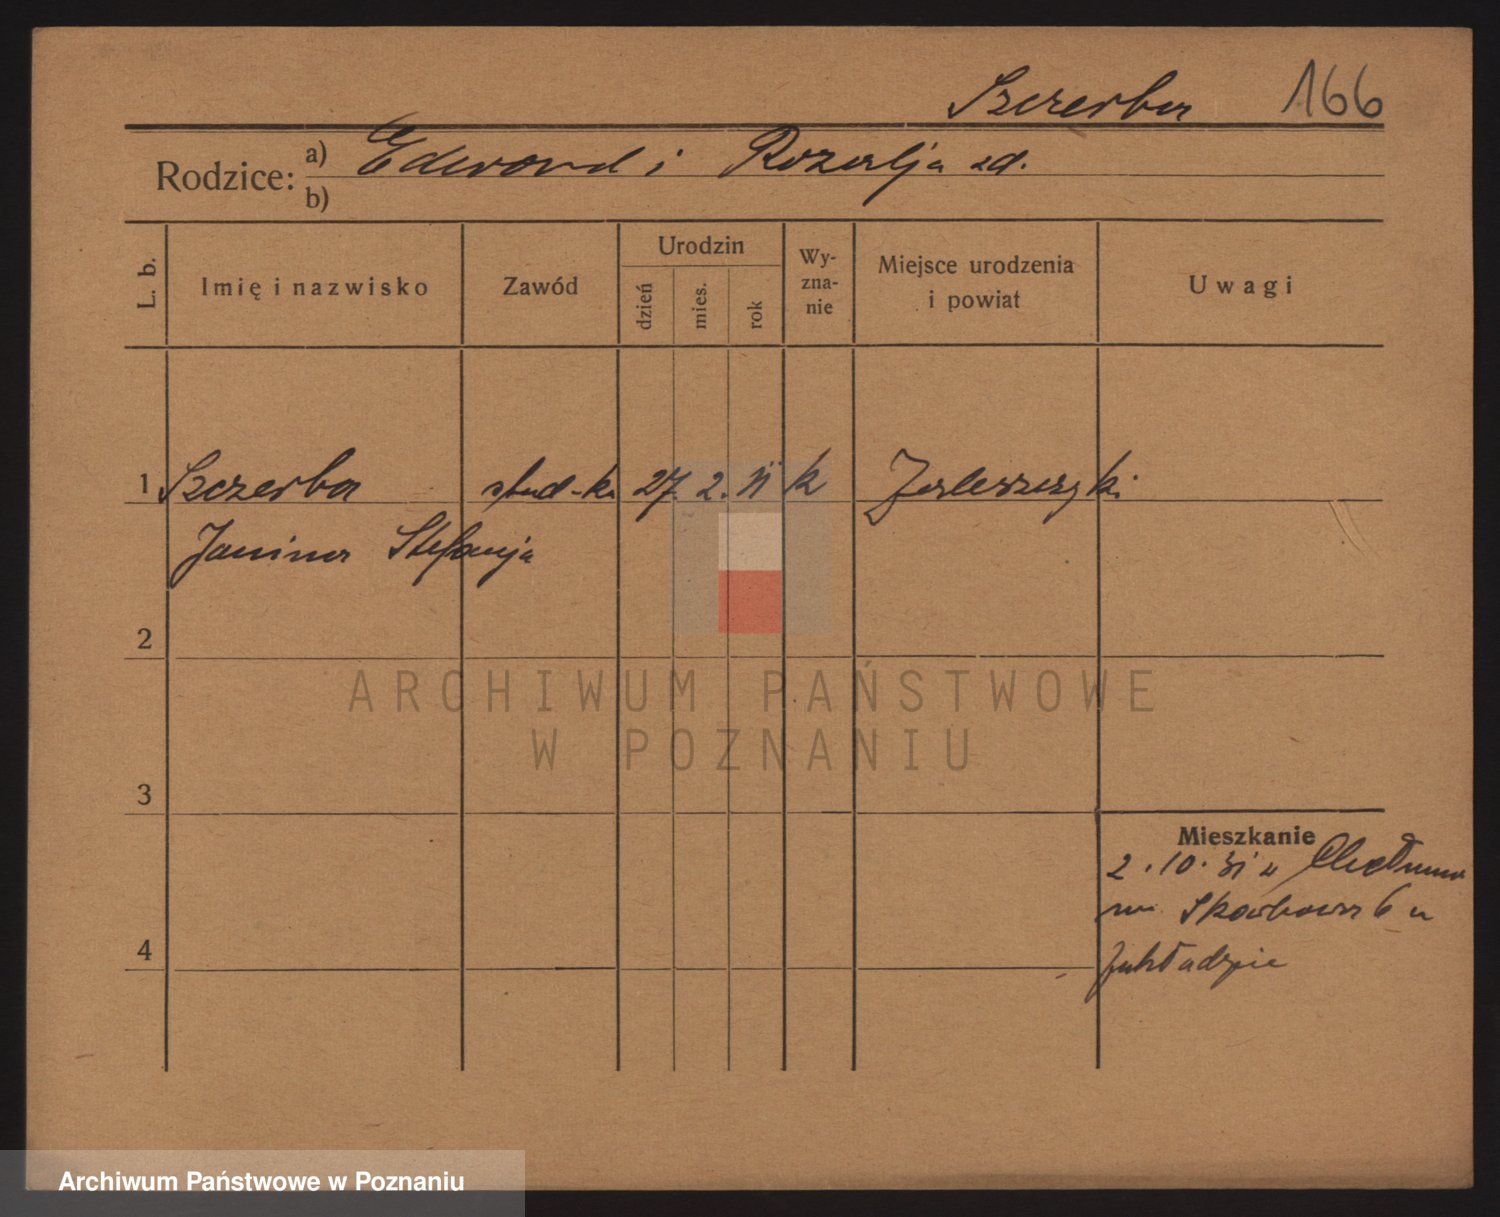 Szczerba 166
Rodzice: a) Edward i Rozalja zd.
b)
L. b. Imię i nazwisko Zawód Urodzin dzień mies. rok Wy-zna-nie Miejsce urodzenia i powiat Uwagi
1 Szczerba stud-ka 27. 2. 11 k
Janina Stefanja
2
ARCHIWUM PAŃSTWOWE
W POZNANIU
3
Mieszkanie
2.10.31 z
Skarbowa 6 u
4
Archiwum Państwowe w Poznaniu